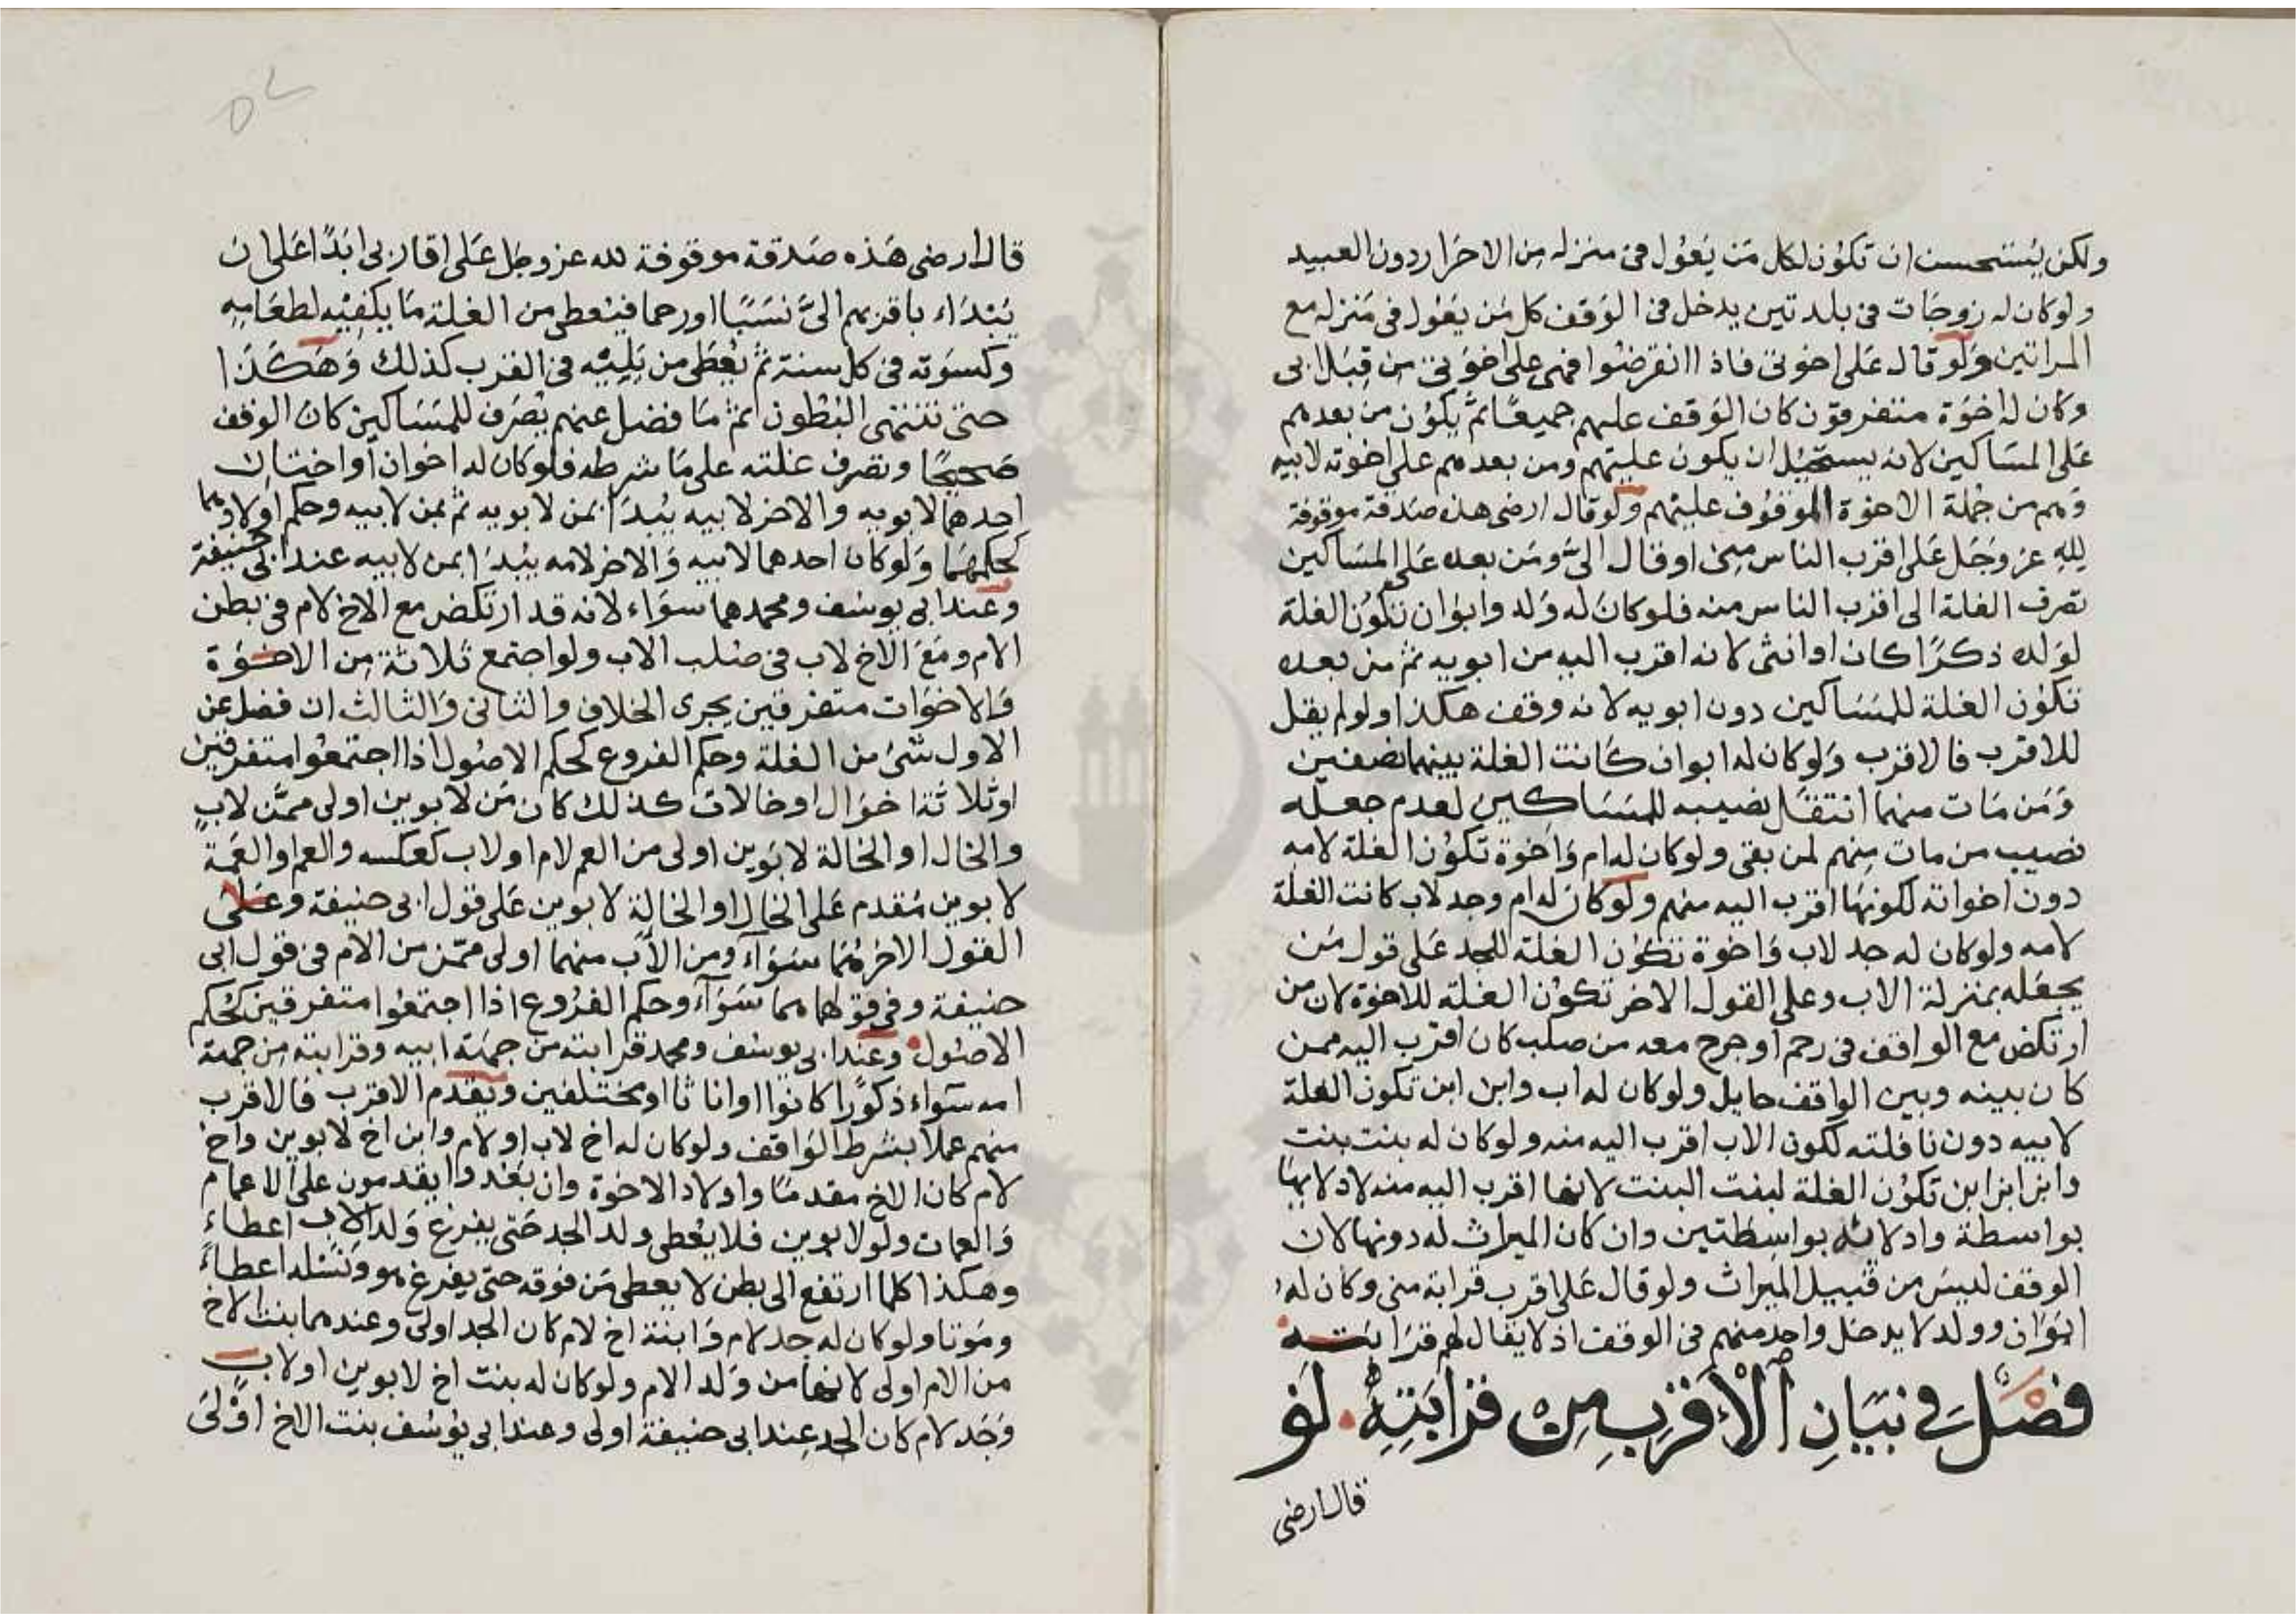 ولكن يستحسن ان تكون لكل من يعول فى منزله من الاحرار دون العبيد
ولو كان له زوجات فى بلدتين يدخل فى الوقف كل من يعول فى منزله مع
المراتين ولو قال على اخوتى فاذا انقرضوا فهى على اخوتى من قبل ابى
وكان له اخوة متفرقون كان الوقف عليهم جميعًا ثم يكون من بعدهم
على المساكين لانه يستحيل ان يكون عليهم ومن بعدهم على اخوته لابيه
وهم من جملة الاخوة الموقوف عليهم ولو قال ارضى هذه صدقة موقوفة
لله عز وجل على اقرب الناس منى او قال الىّ ومن بعده على المساكين
تصرف الغلة الى اقرب الناس منه فلو كان له ولد وابوان تكون الغلة
لولده ذكرًا كان او انثى لانه اقرب اليه من ابويه ثم من بعده
تكون الغلة للمساكين دون ابويه لانه وقف هكذا ولو لم يقل
للاقرب فالاقرب ولو كان له ابوان كانت الغلة بينهما نصفين
ومن مات منهما انتقل نصيبه للمساكين لعدم جعله
نصيب من مات منهم لمن بقى ولو كان له ام واخوة تكون الغلة لامه
دون اخواته لكونها اقرب اليه منهم ولو كان له ام وجد لاب كانت الغلة
لامه ولو كان له جد لاب واخوة تكون الغلة للجد على قول من
يجعله بمنزلة الاب وعلى القول الاخر تكون الغلة للاخوة لان من
ارتكض مع الواقف فى رحم او خرج معه من صلب كان اقرب اليه ممن
كان بينه وبين الواقف حايل ولو كان له اب وابن ابن تكون الغلة
لابيه دون نافلته لكون الاب اقرب اليه منه ولو كان له بنت بنت
وابن ابن ابن تكون الغلة لبنت البنت لانها اقرب اليه منه لادلايها
بواسطة وادلائه بواسطتين وان كان الميراث له دونها لان
الوقف ليس من قبيل الميراث ولو قال على اقرب قرابة منى وكان له
ابوان وولد لا يدخل واحد منهم فى الوقف اذ لا يقال لهم قرابته
فصل فى بيان الاقرب من قرابته لو
قال ارضى
قال ارضى هذه صدقة موقوفة لله عز وجل على اقاربى ابدًا على ان
يبداء باقربهم الىّ نسبًا او رحما فيعطى من الغلة ما يكفيه لطعامه
وكسوته فى كل سنة ثم يعطى من يليه فى القرب كذلك وهكذا
حتى تنتهى البطون ثم ما فضل عنهم يصرف للمساكين كان الوقف
صحيحًا وتصرف غلته على ما شرطه فلو كان له اخوان او اختان
احدهما لابويه والاخر لابيه يبدا بمن لابويه ثم بمن لابيه وحكم اولادهما
كحكمهما ولو كان احدهما لابيه والاخر لامه يبدا بمن لابيه عند ابى حنيفة
وعند ابى يوسف ومحمد هما سواء لانه قد ارتكض مع الاخ لام فى بطن
الام ومع الاخ لاب فى صلب الاب ولو اجتمع ثلاثة من الاخوة
والاخوات متفرقين يجرى الخلاف والثانى والثالث ان فضل عن
الاول شئ من الغلة وحكم الفروع كحكم الاصول اذا اجتمعوا متفرقين
او ثلاثة اخوال او خالات كذلك كان من لابوين اولى ممن لاب
والخال او الخالة لابوين اولى من العم لام او لاب كعكسه والعم او العمة
لابوين مقدم على الخال او الخالة لابوين على قول ابى حنيفة وعلى
القول الاخر هما سواء ومن الاب منهما اولى ممن من الام فى قول ابى
حنيفة وفى قولهما هما سواء وحكم الفروع اذا اجتمعوا متفرقين كحكم
الاصول وعند ابى يوسف ومحمد قرابته من جهة ابيه وقرابته من جهة
امه سواء ذكورًا كانوا او اناثا او مختلفين ويقدم الاقرب فالاقرب
منهم عملا بشرط الواقف ولو كان له اخ لاب او لام وابن اخ لابوين واخ
لام كان الاخ مقدمًا واولاد الاخوة وان بعدوا يقدمون على الاعمام
والعمات ولو لابوين فلا يعطى ولد الجد حتى يفرغ ولد الاب اعطاءً
وهكذا كلما ارتفع الى بطن لا يعطى من فوقه حتى يفرغ هو ونسله اعطاءً
وموتا ولو كان له جد لام وابنة اخ لام كان الجد اولى وعندهما بنت الاخ
من الام اولى لانها من ولد الام ولو كان له بنت اخ لابوين او لاب
وجد لام كان الجد عند ابى حنيفة اولى وعند ابى يوسف بنت الاخ اولى